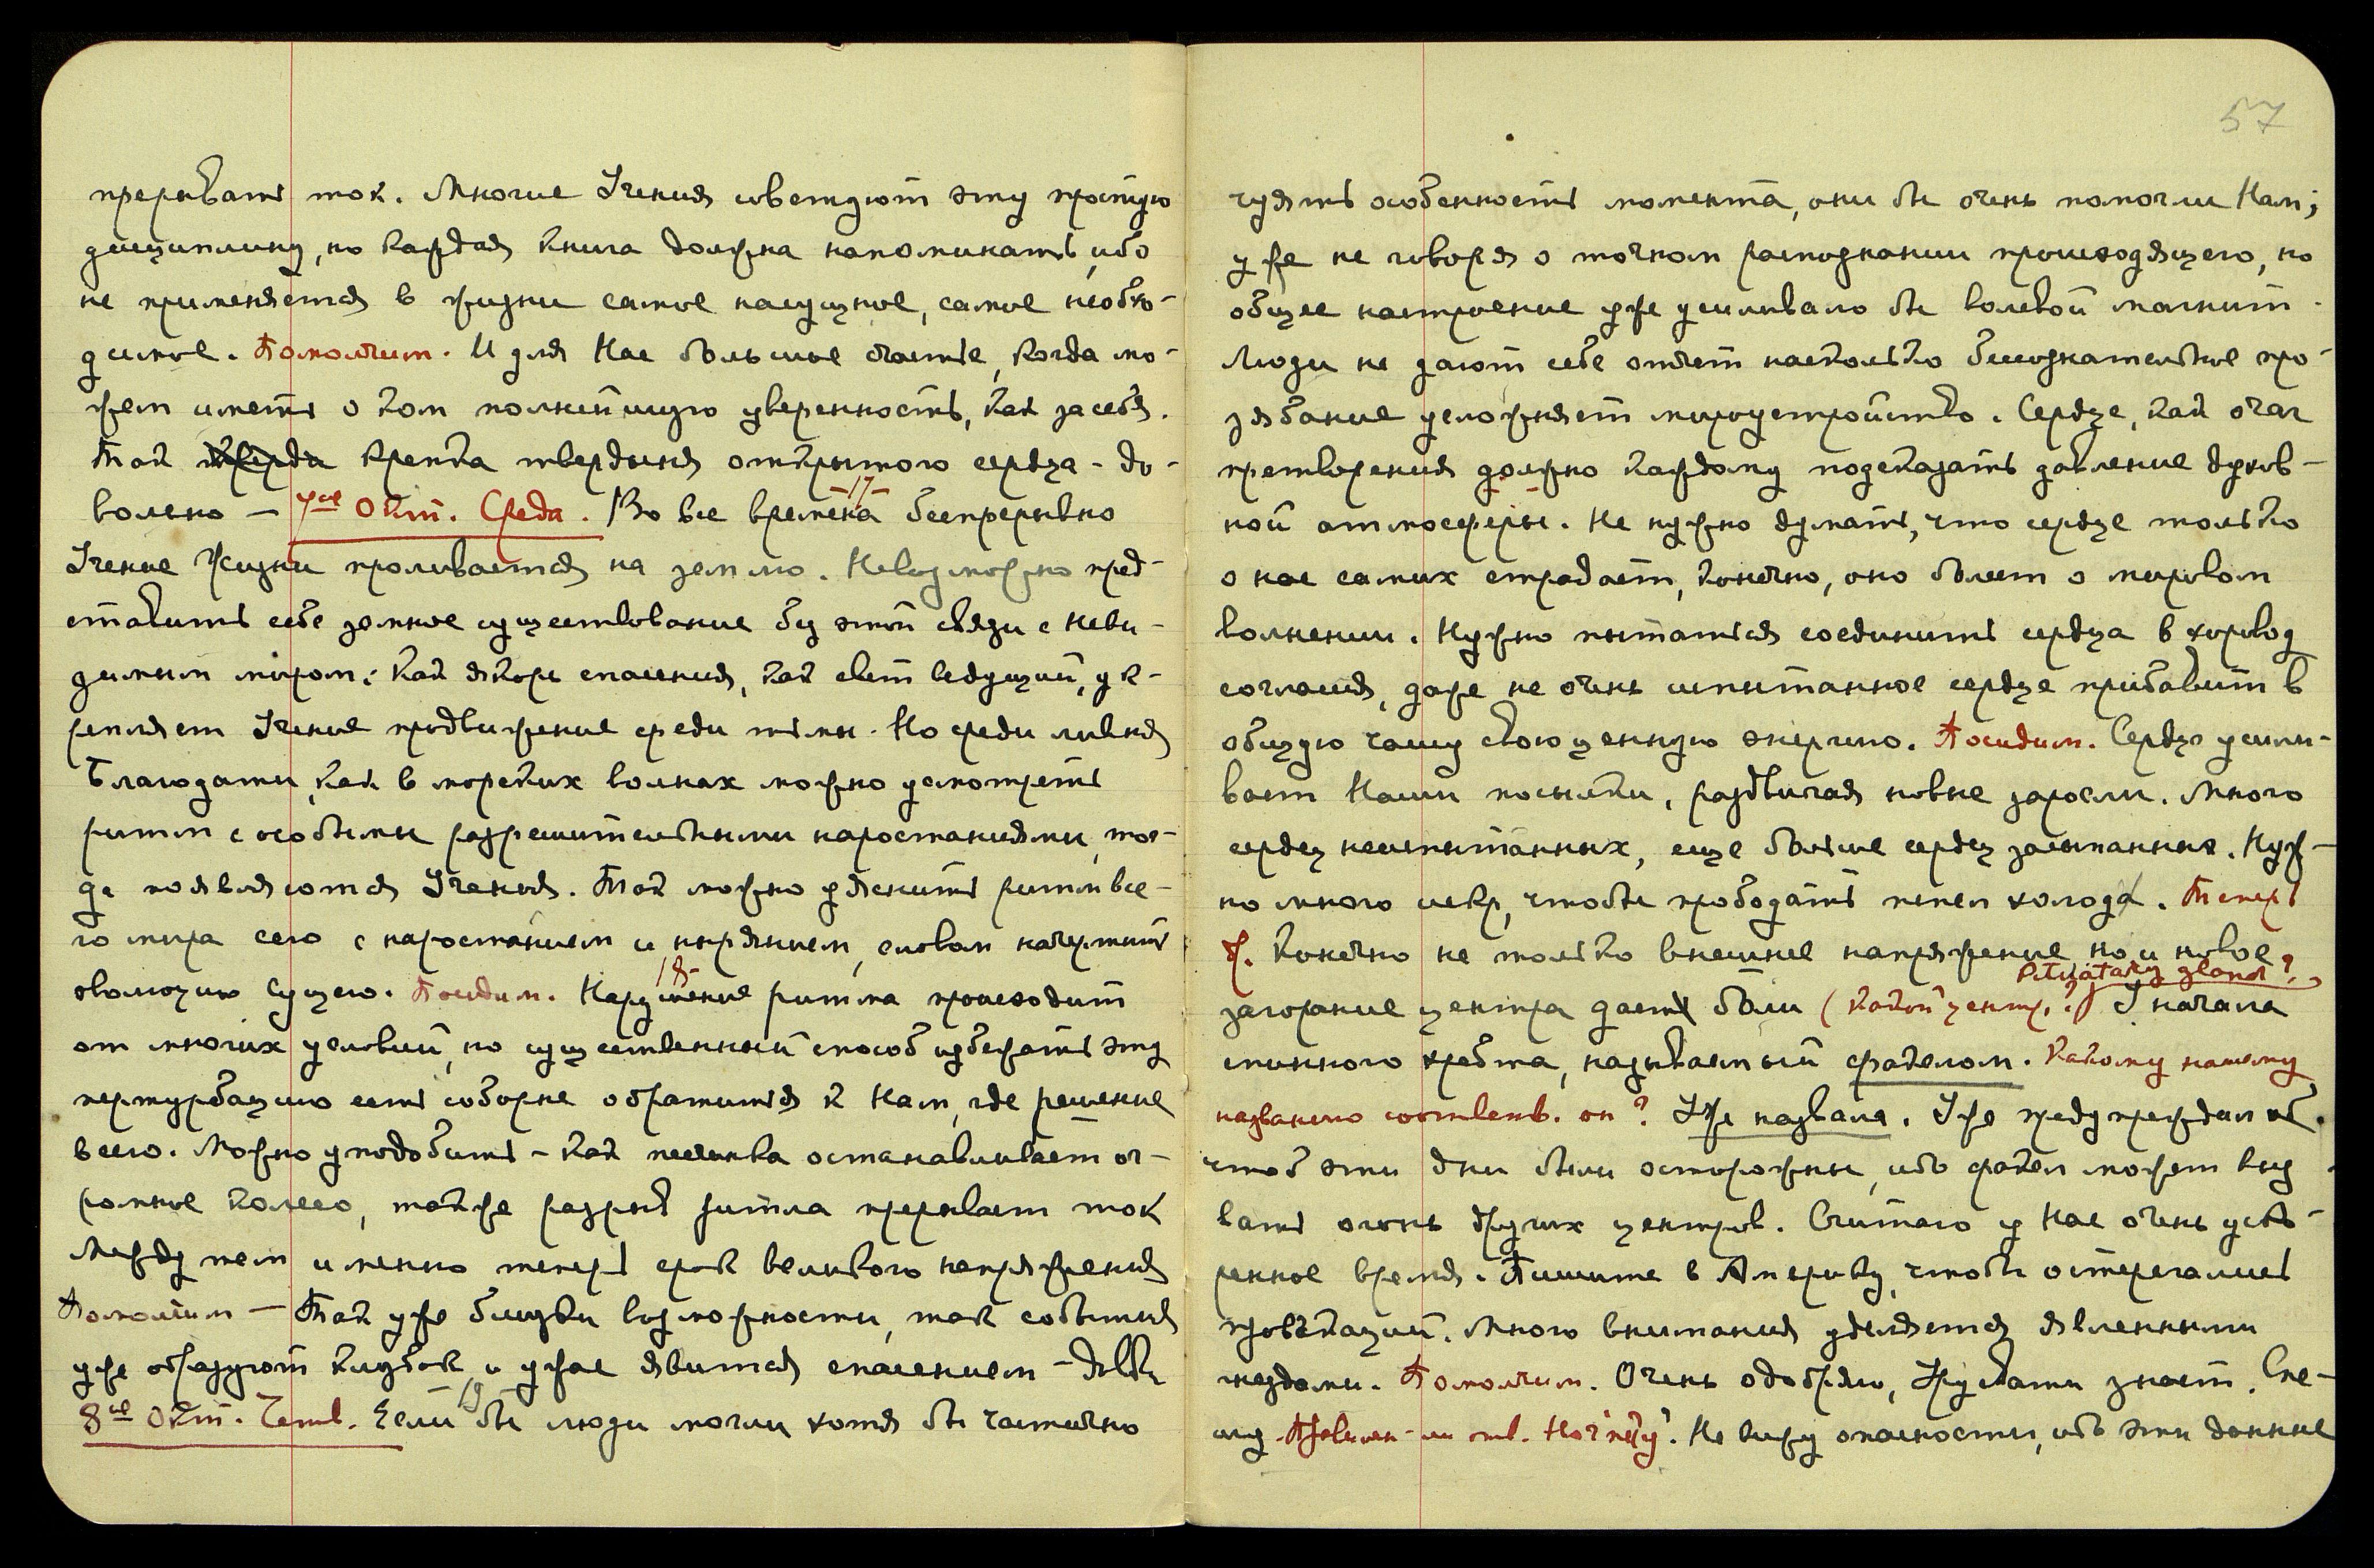 прерывать ток. Многие Учения советуют эту простую
дисциплину, но каждая книга должна напоминать, ибо
не применяется в жизни самое насущное, самое необхо-
димое. Помолчим. И для Нас большое счастье, когда мо-
жем иметь о ком полнейшую уверенность, как за себя.
Так крепка твердыня открытого сердца - до-
вольно — 7ое Окт. Среда. 17 Во все времена беспрерывно
Учение Жизни проливается на землю. Невозможно пред-
ставить себе земное существование без этой связи с Неви-
димым миром; как якорь спасения, как свет ведущий, ук-
репляет Учение продвижение среди тьмы. Но среди ливня
Благодати, как в морских волнах можно усмотреть
ритм с особыми разрешительными наростаниями, тог-
да появляются Учения. Так можно уяснить ритм все-
го мира сего с наростанием и нырянием, словом начертить
эволюцию Сущего. Посидим. 18 Нарушение ритма происходит
от многих условий, но существенный способ избежать эту
пертурбацию есть соборне обратиться к Нам, где решение
всего. Можно уподобить - как песчинка останавливает ог-
ромное колесо, также разрыв ритма прерывает ток
Между тем именно теперь срок великого напряжения
Помолчим — Так уже близки возможности, так события
уже образуют клубок, и ужас явится спасением -
8ое Окт. Четв. 19 Если бы люди могли хотя бы частично
57
чуять особенность момента, они бы очень помогли Нам;
уже не говоря о точном распознании происходящего, но
общее настроение уже усиливало бы волевой магнит.
Люди не дают себе отчет насколько бессознательное про-
зябание усложняет мироустройство. Сердце, как очаг
претворения должно каждому подсказать давление духов-
ной атмосферы. Не нужно думать, что сердце только
о нас самих страдает, конечно, оно болеет о мировом
волнении. Нужно пытаться соединить сердца в хоровод
согласия, даже не очень испытанное сердце прибавит в
общую чашу свою ценную энергию. Посидим. Сердце усили-
вает Наши посылки, раздвигая новые заросли. Много
сердец неиспытанных, еще больше сердец засыпанных. Нуж-
но много искр, чтобы прободать пепел холода. Теперь
ж. Конечно не только внешнее напряжение, но и новое
Pituitary gland?
загорание центра дает боли (какой центр?) У начала
спинного хребта, называемый факелом. Какому нашему
названию соответств. он? Уже назвала. Уже предупреждал об.
чтоб эти дни были осторожны, ибо факел может выз
вать огонь других центров. Считаю у Нас очень уско-
ренное время. Пишите в Америку, чтобы остерегались
провокаций. Много внимания уделяется явленными
гнездами. Помолчим. Очень одобряю, Урусвати знает. Спе-
шу. Не вижу опасности, ибо эти данные